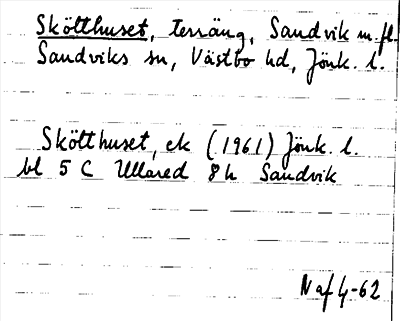 Skölthuset, terräng, Sandvik m. fl.
Sandviks sn, Västbo hd, Jönk. l.
Skölthuset, ek (1961) Jönk. l.
bl 5 C Ullared 8 h Sandvik
Naf 4-62